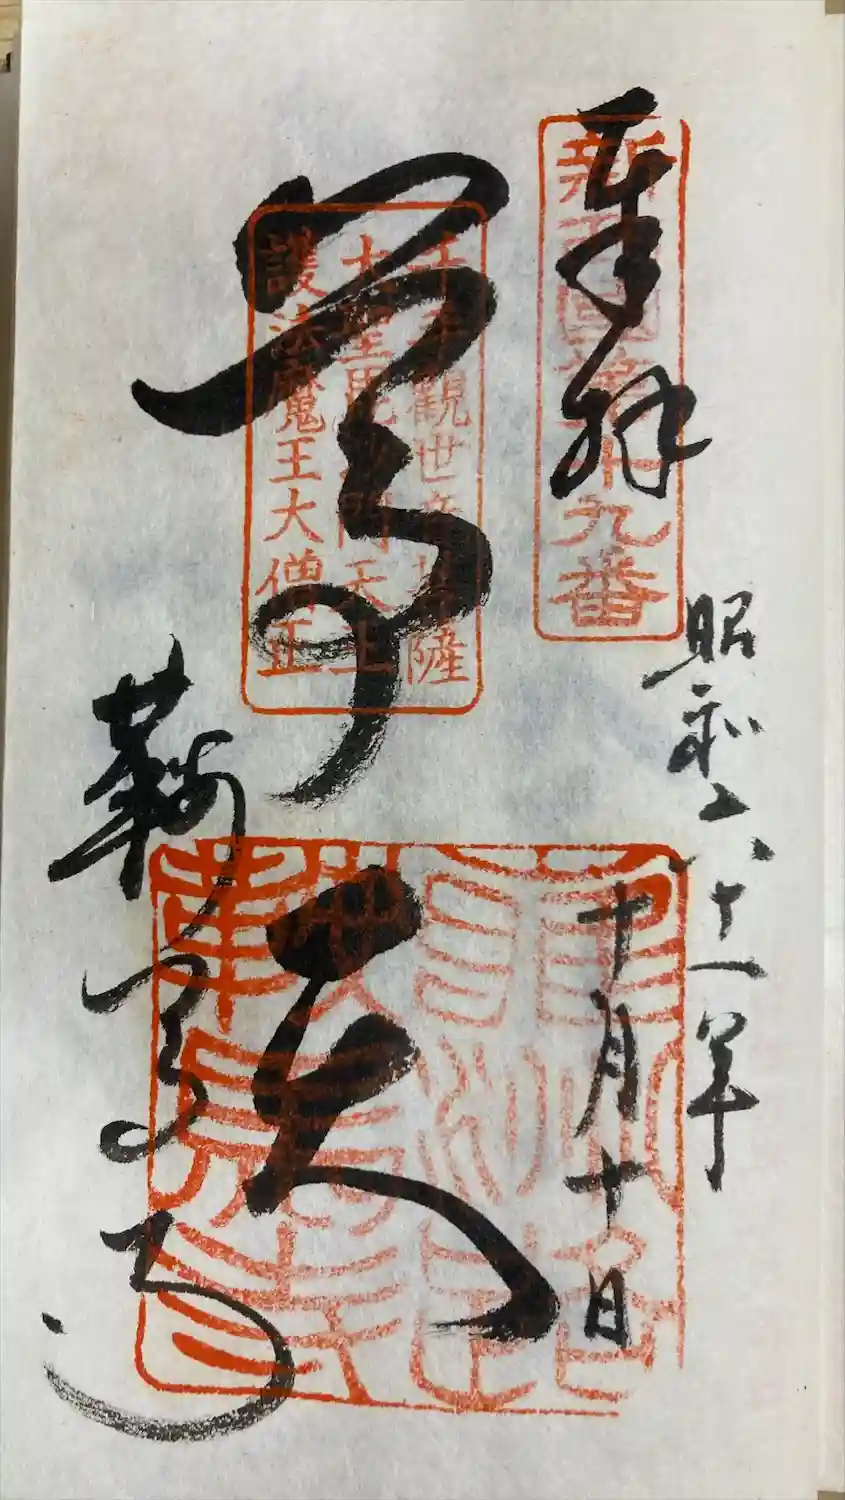 奉拝
新西國第十九番
昭和六十一年
十月十日
尊天
千手觀世音菩薩
大聖毘沙門天王
護法魔王大僧正
鞍馬寺